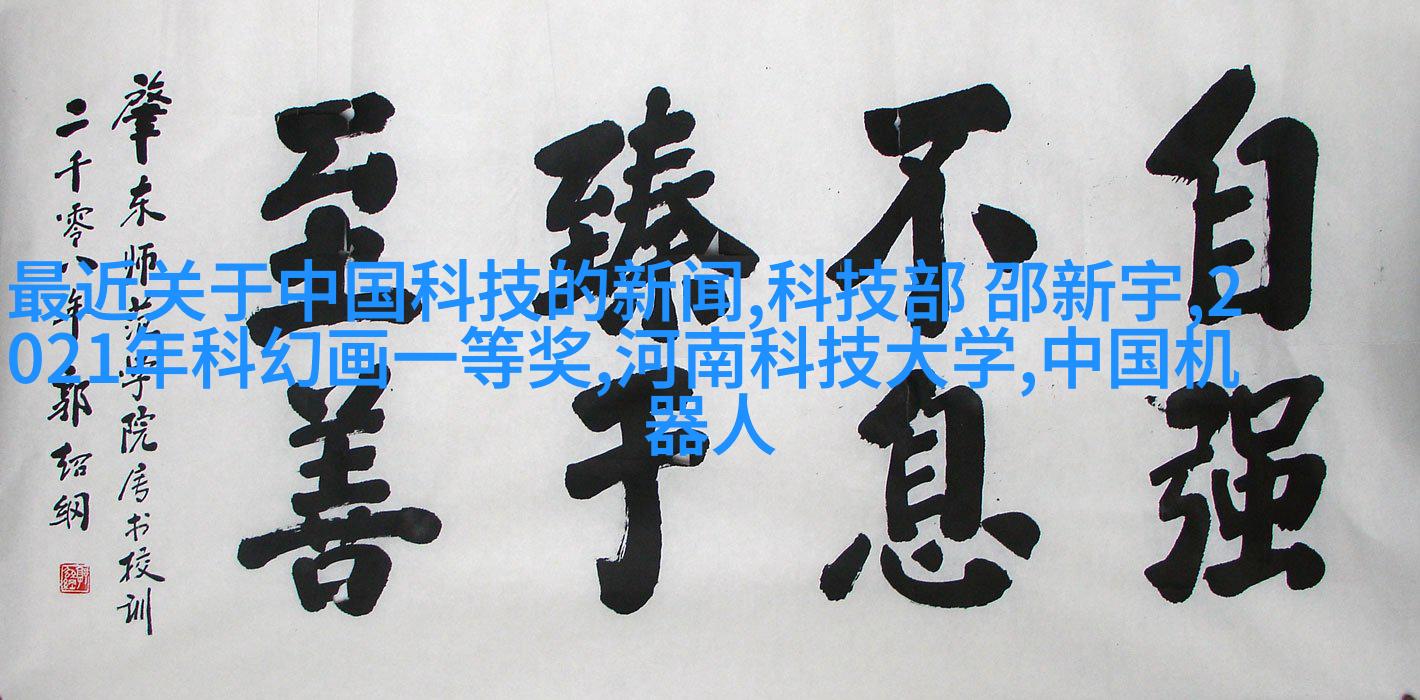 自强
不息
臻于
至善
肇东师范学院属书校训
二千零八年郭绍纲
最近关于中国科技的新闻,科技部 邵新宇,2
021年科幻画一等奖,河南科技大学,中国机
器人